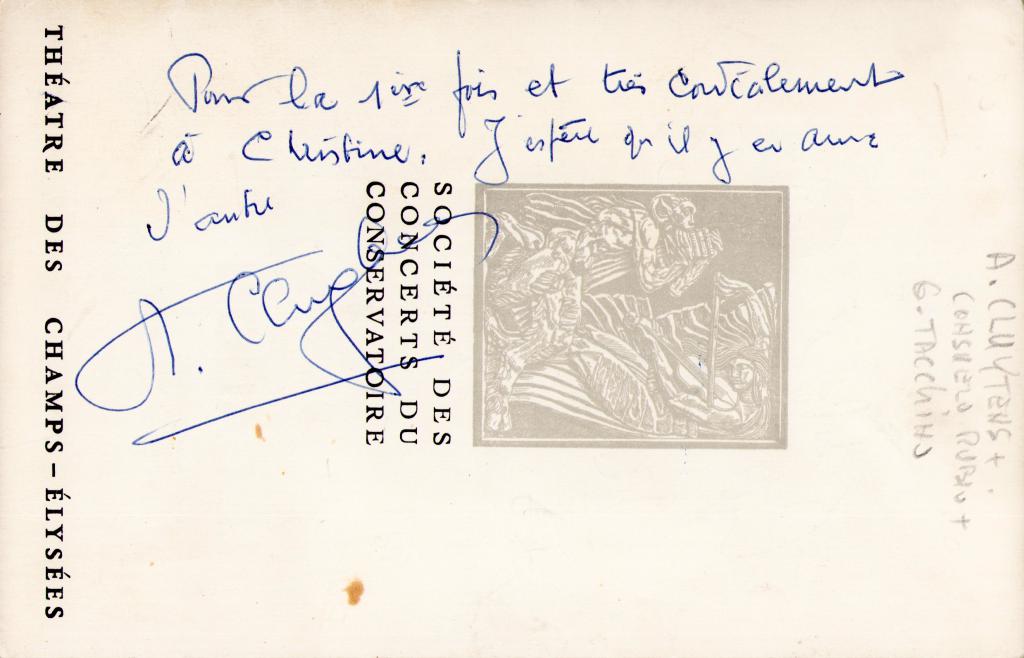 Pour la 1ière fois et très cordialement
à Christine. J'espère qu'il y en aura
d'autre
A. Cluytens
THÉATRE DES CHAMPS-ÉLYSÉES
SOCIÉTÉ DES
CONCERTS DU
CONSERVATOIRE
A. CLUYTENS +
CONSUELO RUBIO +
G. TACCHINO